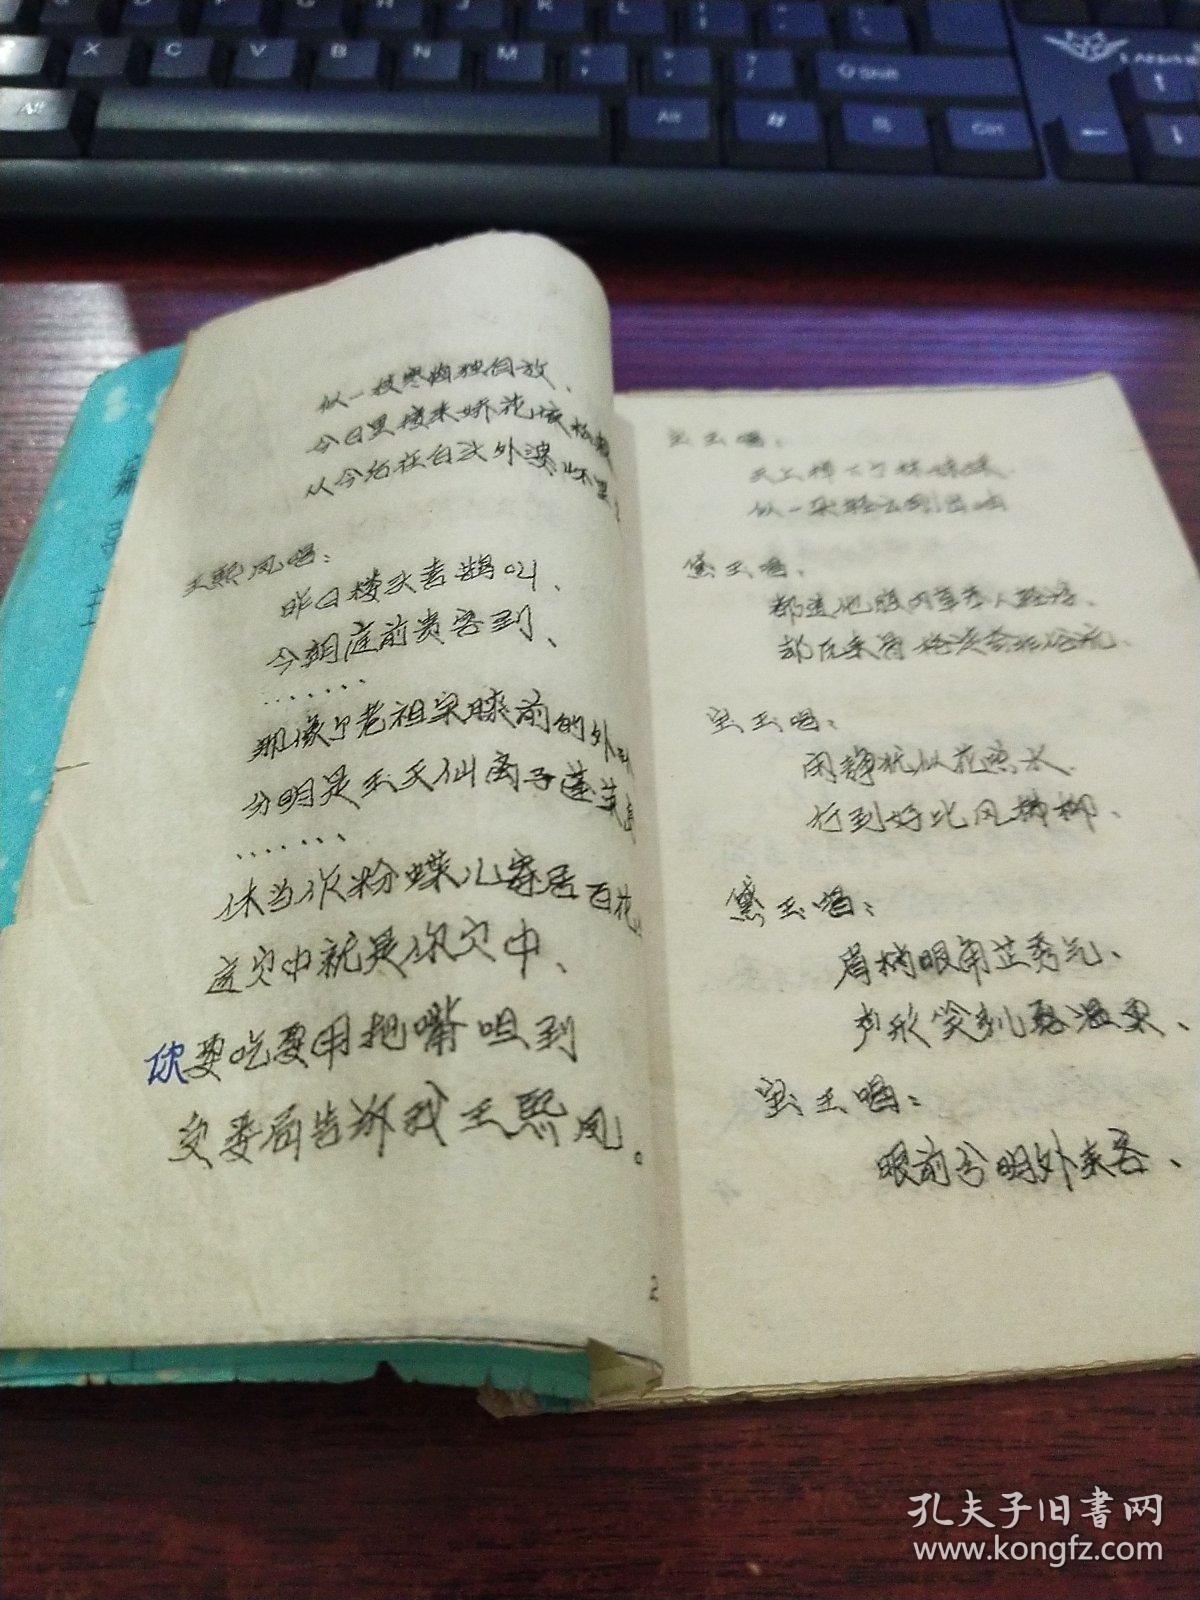 似一枝寒梅独自放、
今日里接来娇花依松栽
从今后在白头外婆怀里
王熙凤唱：
昨日楼头喜鹊叫、
今朝庭前贵客到、
……
那像个老祖宗膝前的外
分明是玉天仙离了蓬莱
……
休当作粉蝶儿寄居百花
这穴中就是你穴中、
你要吃要用把嘴呾到
受委屈告诉我王熙凤。
2
宝玉唱：
天上掉下个林妹妹
似一朵轻云刚出岫
黛玉唱：
都道他腹内草莽人轻浮、
却原来骨格清奇非俗流、
宝玉唱：
闲静犹似花照水
行到好比风拂柳、
黛玉唱：
眉梢眼角芷秀气、
声形笑刹露温柔、
宝玉唱：
眼前分明外来客、
孔夫子旧书网
www.kongfz.com